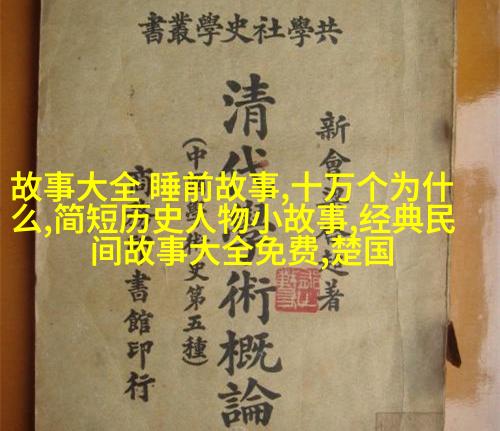 共學社史學叢書
新會梁啟超著
清代學術概論
(中國學術史第五種)
商務印書館印行
故事大全 睡前故事,十万个为什
么,简短历史人物小故事,经典民
间故事大全免费,楚国